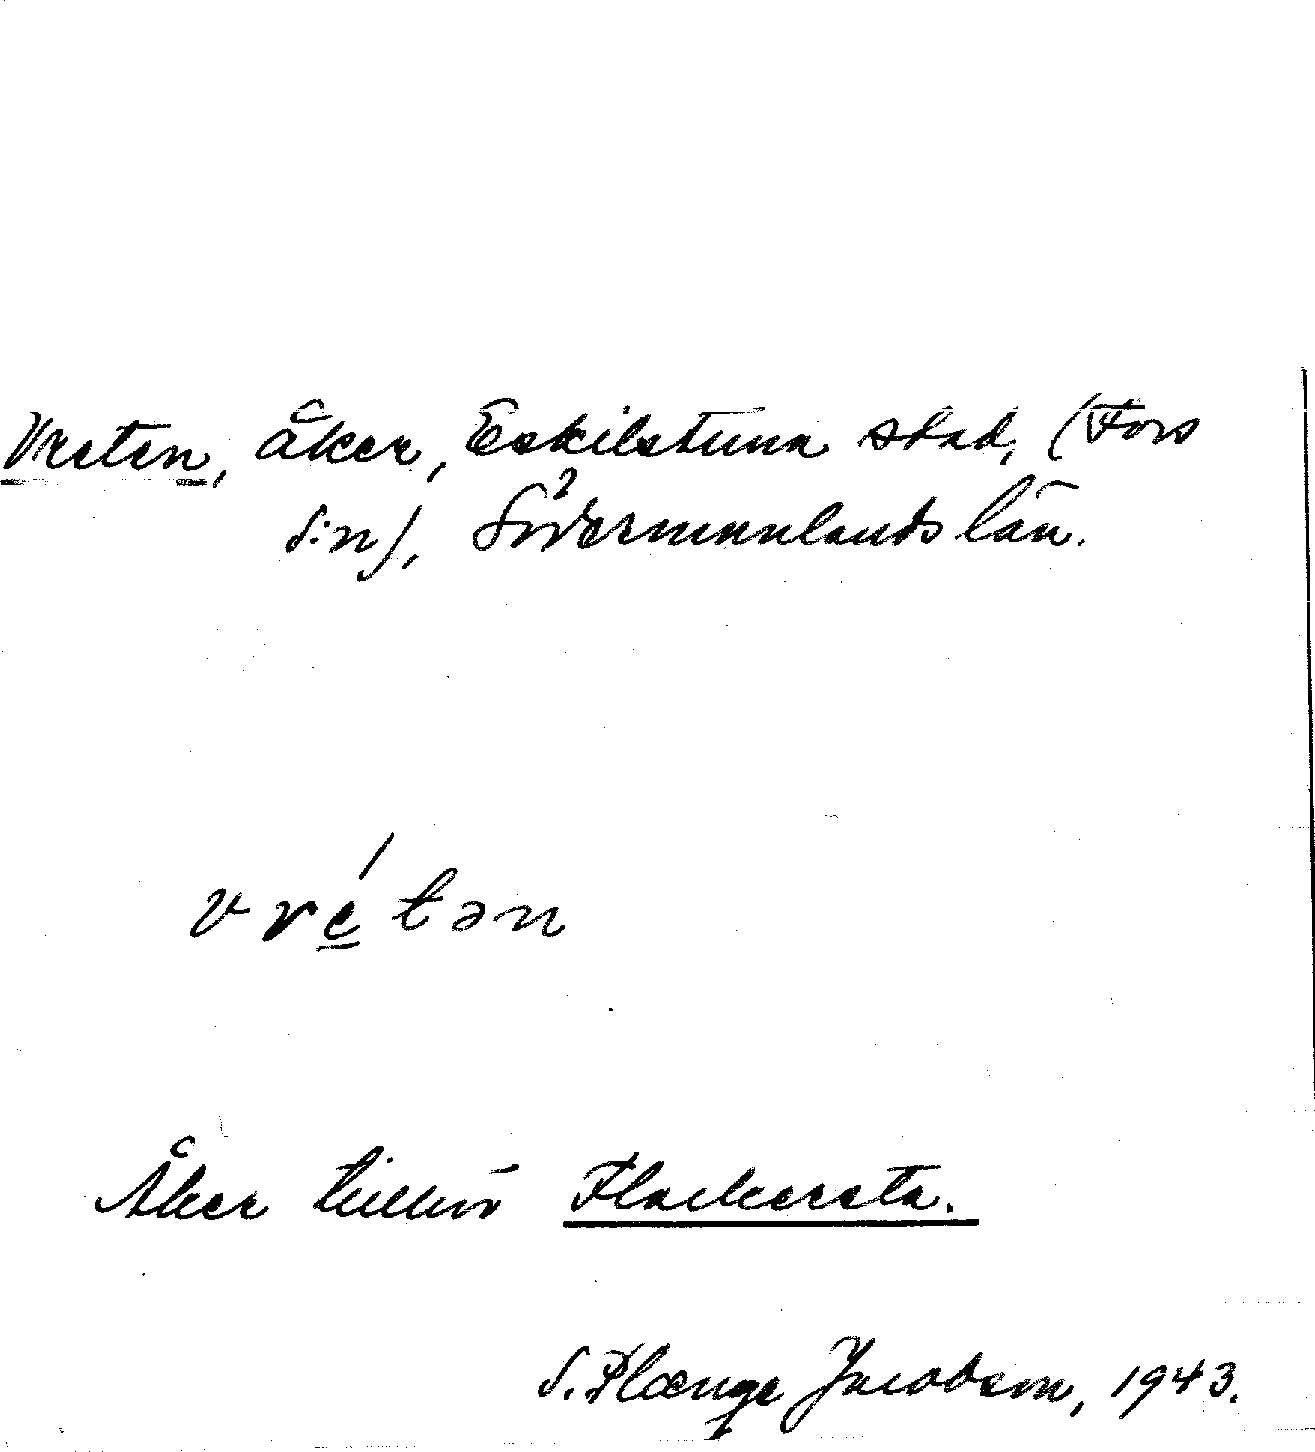 Vreten, åker, Eskilstuna stad, (Fors
s:n), Södermanlands län.
vré̲tən
Åker tillhör Flackersta.
S. Plænge Jacobson, 1943.